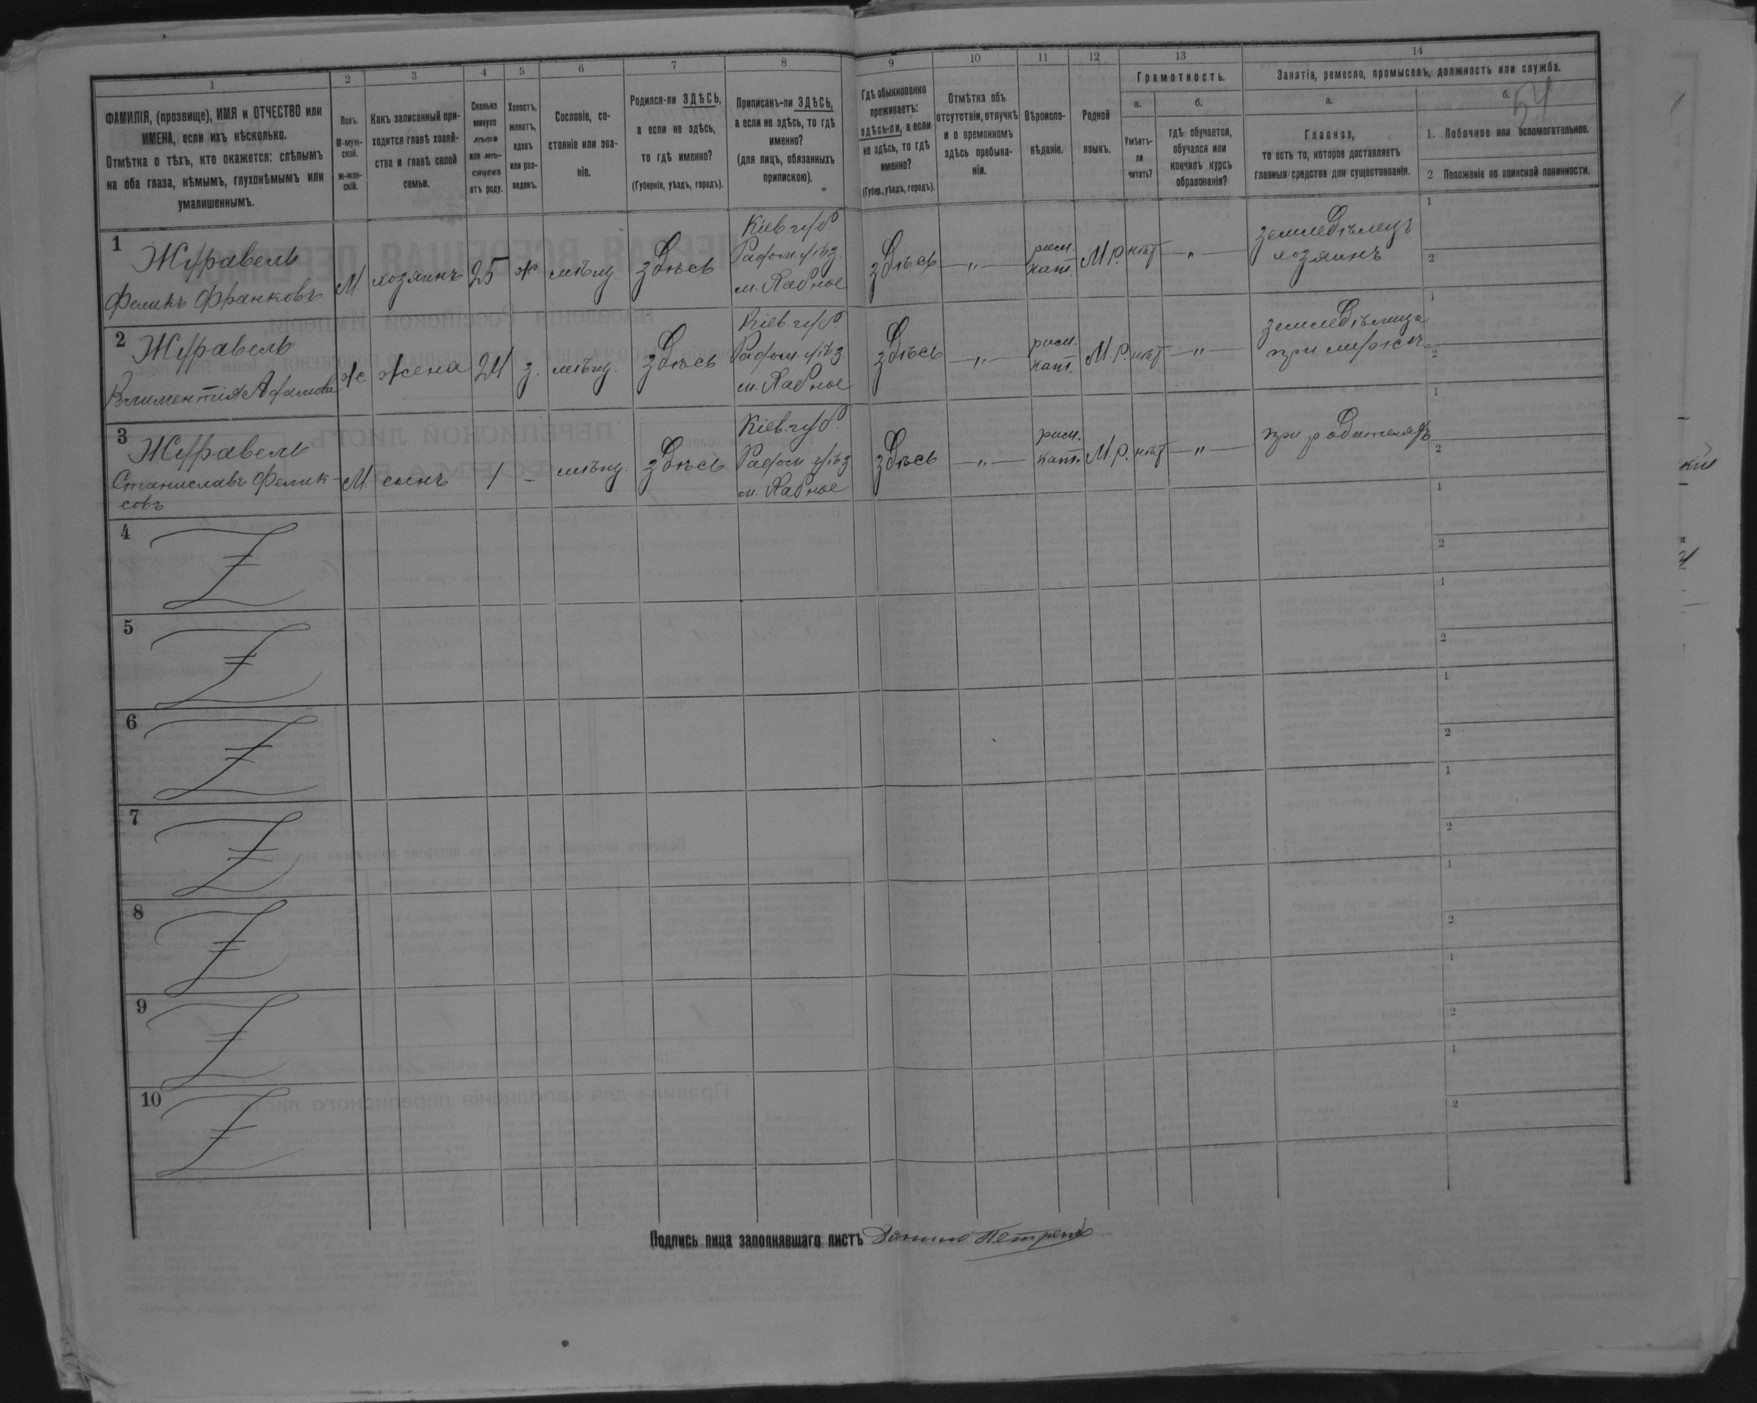 1
2
3
4
5
6
7
8
9
10
11
12
13
14
ФАМИЛІЯ, (прозвище), ИМЯ и ОТЧЕСТВО или
ИМЕНА, если ихъ нѣсколько.
Отмѣтка о тѣхъ, кто окажется: слѣпымъ
на оба глаза, нѣмымъ, глухонѣмымъ или
умалишеннымъ.
Полъ.
М-муж-
ской.
ж-жен-
скій.
Какъ записанный при-
ходится главѣ хозяй-
ства и главѣ своей
семьи.
Сколько
минуло
лѣтъ
или мѣ-
сяцевъ
отъ роду.
Холостъ,
женатъ,
вдовъ
или раз-
веденъ.
Сословіе, со-
стояніе или зва-
ніе.
Родился-ли ЗДѢСЬ,
а если не здѣсь,
то гдѣ именно?
(Губернія, уѣздъ, городъ).
Приписанъ-ли ЗДѢСЬ,
а если не здѣсь, то гдѣ
именно?
(для лицъ, обязанныхъ
припискою).
Гдѣ обыкновенно
проживаетъ:
здѣсь-ли, а если
не здѣсь, то гдѣ
именно?
(Губер., уѣздъ, городъ).
Отмѣтка объ
отсутствіи, отлучкѣ
и о временномъ
здѣсь пребыва-
ніи.
Вѣроиспо-
вѣданіе.
Родной
языкъ.
Грамотность.
а.
Умѣетъ-
ли
читать?
б.
гдѣ обучается,
обучался или
кончилъ курсъ
образованія?
Занятія, ремесло, промыселъ, должность или служба.
а.
Главное,
то есть то, которое доставляетъ
главныя средства для существованія.
б.
54
1. Побочное или вспомогательное.
2 Положеніе по воинской повинности.
1
Журавель
Феликъ Франковъ
М
хозяинъ
25
ж
мѣщ.
здѣсь
Кіев. губ
Радом. уѣз.
м. Хабное
здѣсь
—„—
рим.
кат.
М.Р.
нѣт
—„—
земледѣлецъ
хозяинъ
1
2
2
Журавель
ж
жена
24
з.
мѣщ.
здѣсь
Кіев. губ
Радом. уѣз
м. Хабное
здѣсь
—„—
рим.
кат.
М.Р.
нѣт
—„—
при мужѣ
1
2
3
Журавель
Станиславъ Фелик-
совъ
М
сынъ
1
–
мѣщ.
здѣсь
Кіев. губ
Радом уѣз
м. Хабное
здѣсь
—„—
рим.
кат.
М.Р.
нѣт
—„—
при родителяхъ
1
2
4
1
2
5
1
2
6
1
2
7
1
2
8
1
2
9
1
2
10
1
2
Подпись лица заполнявшаго листъ